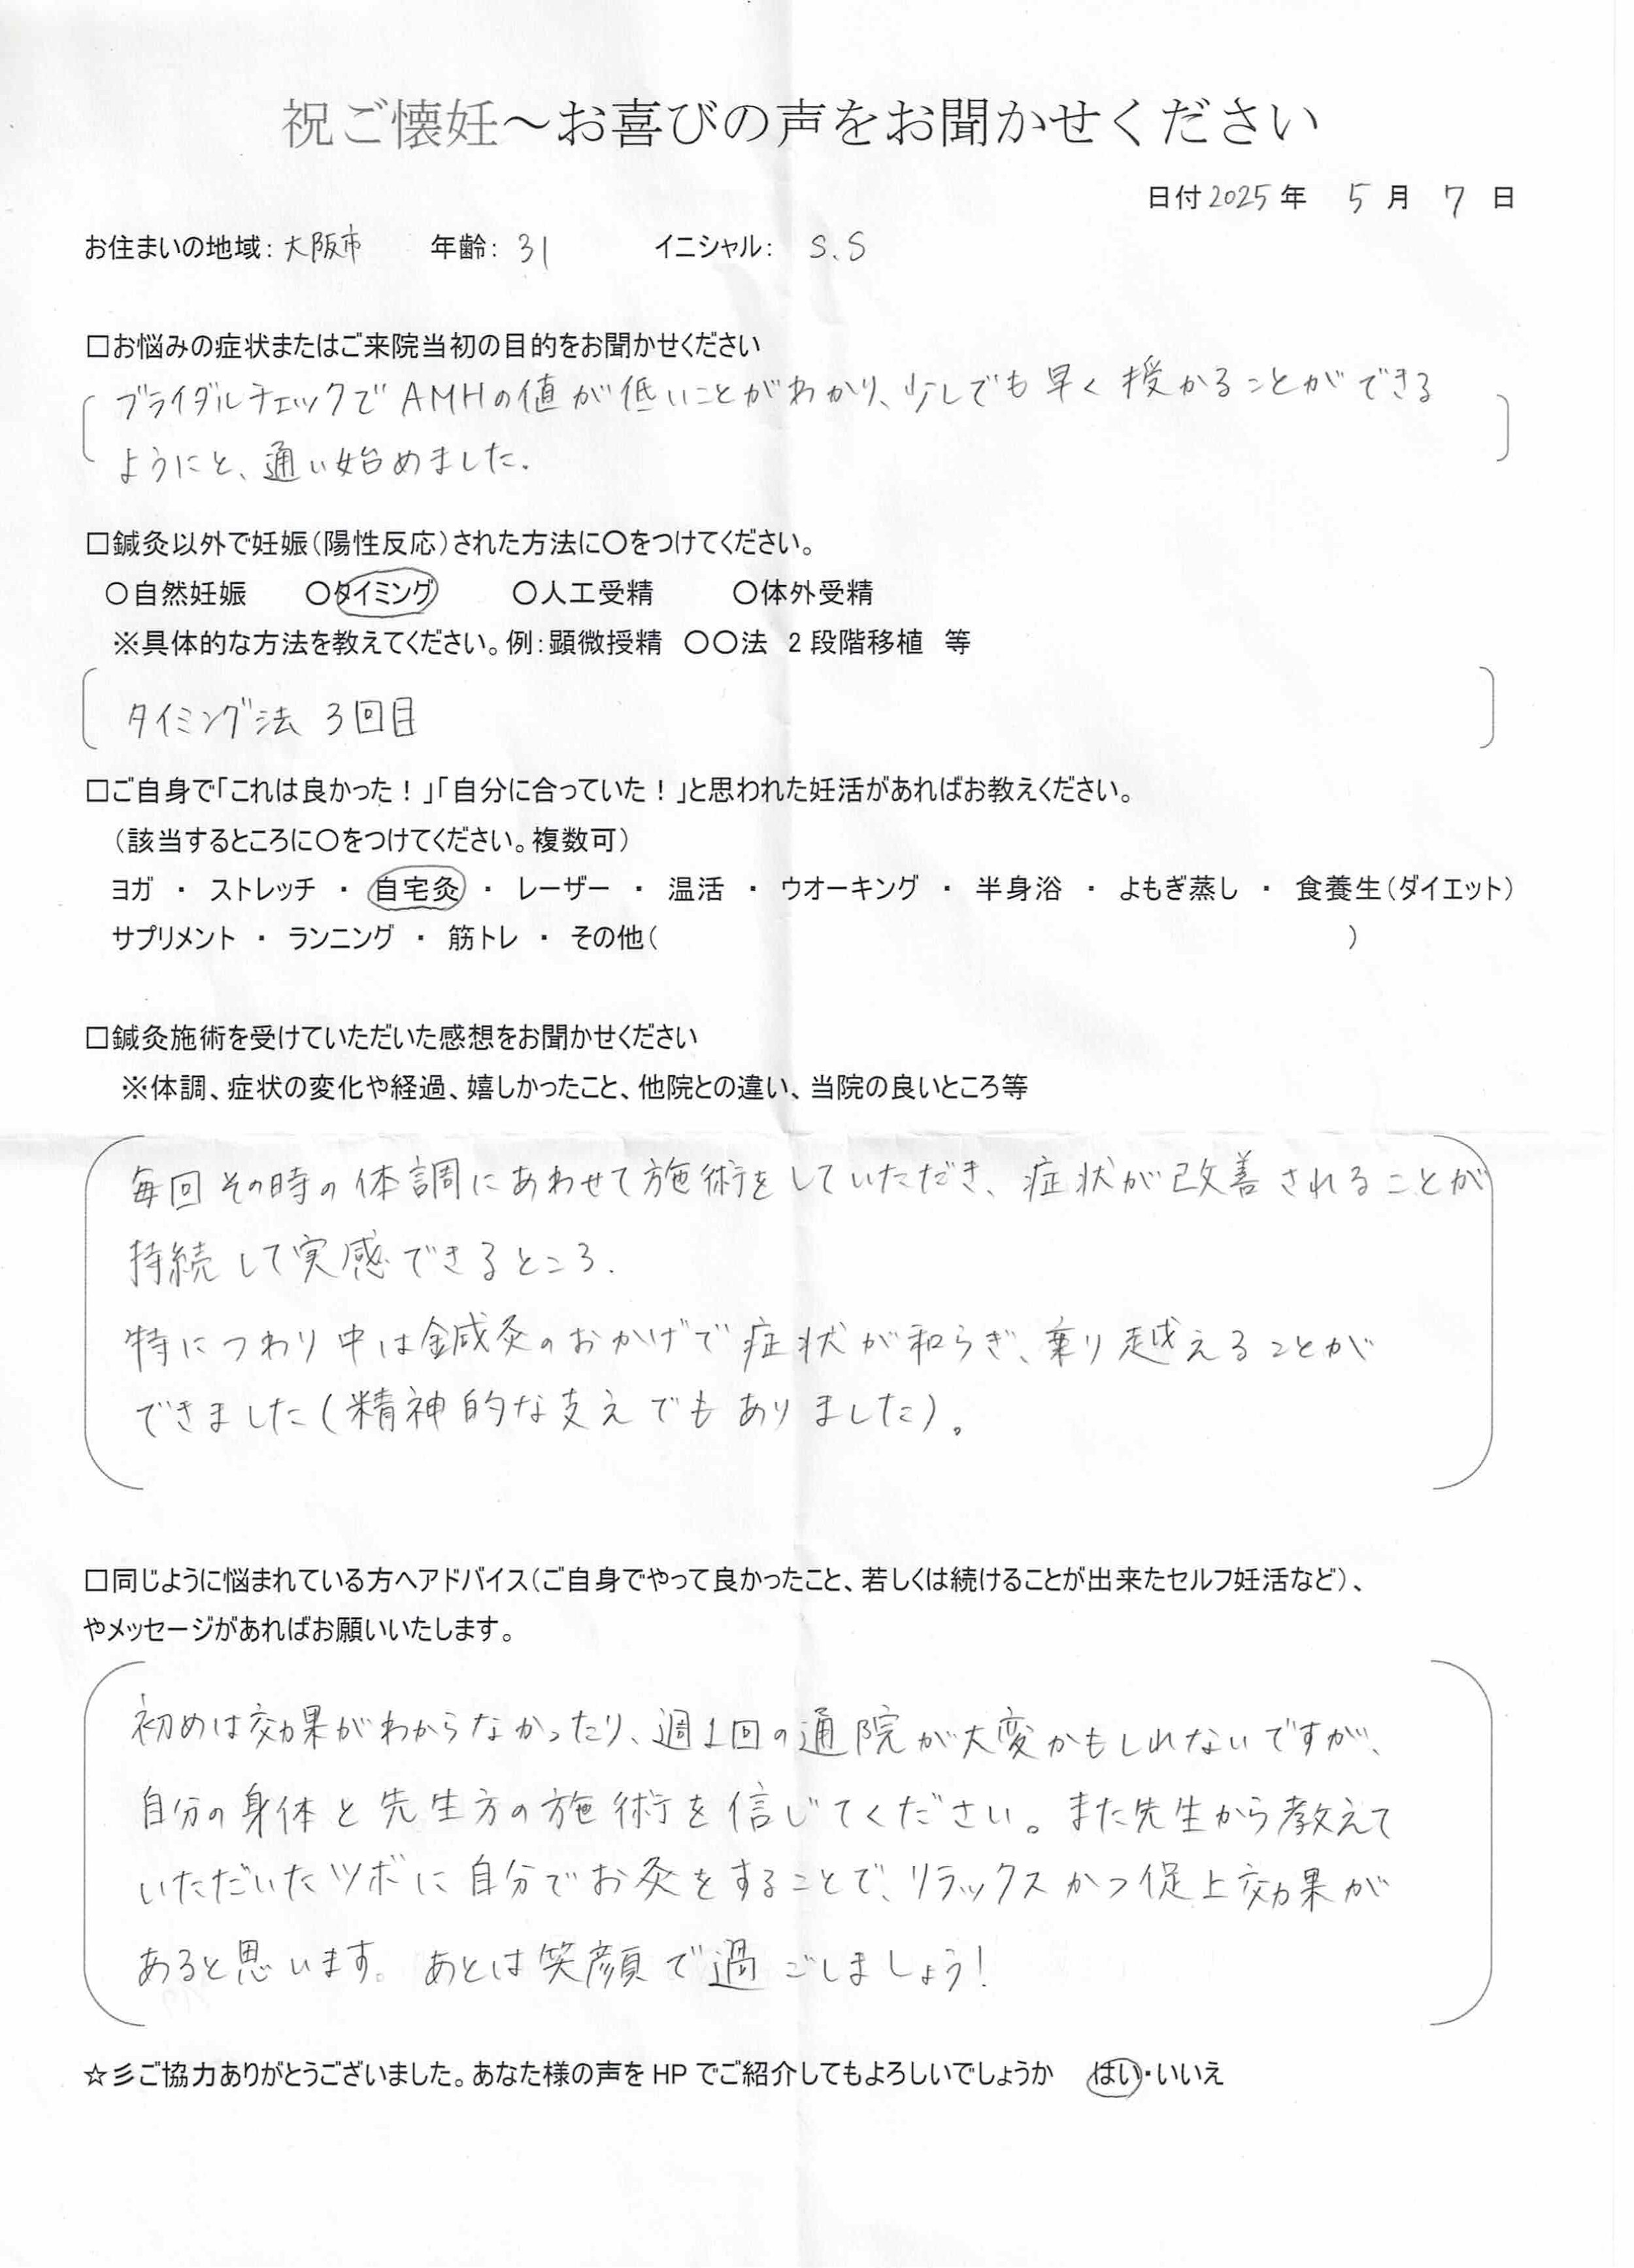 祝ご懐妊～お喜びの声をお聞かせください
日付2025年 5月 7日
お住まいの地域：大阪市 年齢：31 イニシャル： S.S
□お悩みの症状またはご来院当初の目的をお聞かせください
ブライダルチェックでAMHの値が低いことがわかり、少しでも早く授かることができる
ようにと、通い始めました.
□鍼灸以外で妊娠（陽性反応）された方法に〇をつけてください。
〇自然妊娠 〇タイミング 〇人工受精 〇体外受精
※具体的な方法を教えてください。例：顕微授精 〇〇法 2段階移植 等
タイミング法 3回目
□ご自身で「これは良かった！」「自分に合っていた！」と思われた妊活があればお教えください。
（該当するところに〇をつけてください。複数可）
ヨガ ・ ストレッチ ・ 自宅灸 ・ レーザー ・ 温活 ・ ウオーキング ・ 半身浴 ・ よもぎ蒸し ・ 食養生（ダイエット）
サプリメント ・ ランニング ・ 筋トレ ・ その他（ ）
□鍼灸施術を受けていただいた感想をお聞かせください
※体調、症状の変化や経過、嬉しかったこと、他院との違い、当院の良いところ等
毎回その時の体調にあわせて施術をしていただき、症状が改善されることが
持続して実感できるところ.
特につわり中は鍼灸のおかげで症状が和らぎ、乗り越えることが
できました（精神的な支えでもありました）。
□同じように悩まれている方へアドバイス（ご自身でやって良かったこと、若しくは続けることが出来たセルフ妊活など）、
やメッセージがあればお願いいたします。
初めは効果がわからなかったり、週1回の通院が大変かもしれないですが、
自分の身体と先生方の施術を信じてください。また先生から教えて
いただいたツボに自分でお灸をすることで、リラックスかつ促上効果が
あると思います。あとは笑顔で過ごしましょう！
☆彡ご協力ありがとうございました。あなた様の声をHPでご紹介してもよろしいでしょうか はい・いいえ